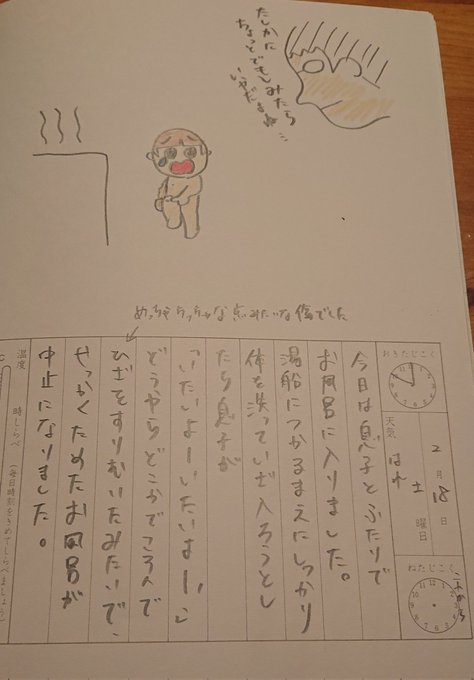 たしかに
ちょっとでもしみたら
いやだよね…
めっちゃちっちゃな点みたいな傷でした
おきたじこく
天気
はれ
2月18日
土曜日
ねたじこく
今日は息子とふたりで
お風呂に入りました。
湯船につかるまえにしっかり
体を洗っていざ入ろうとし
たら息子が
「いたいよーいたいよー」
どうやらどこかでころんで
ひざをすりむいたみたいで、
せっかくためたお風呂が
中止になりました。
温度
時しらべ
(毎日時刻をきめてしらべましょう)